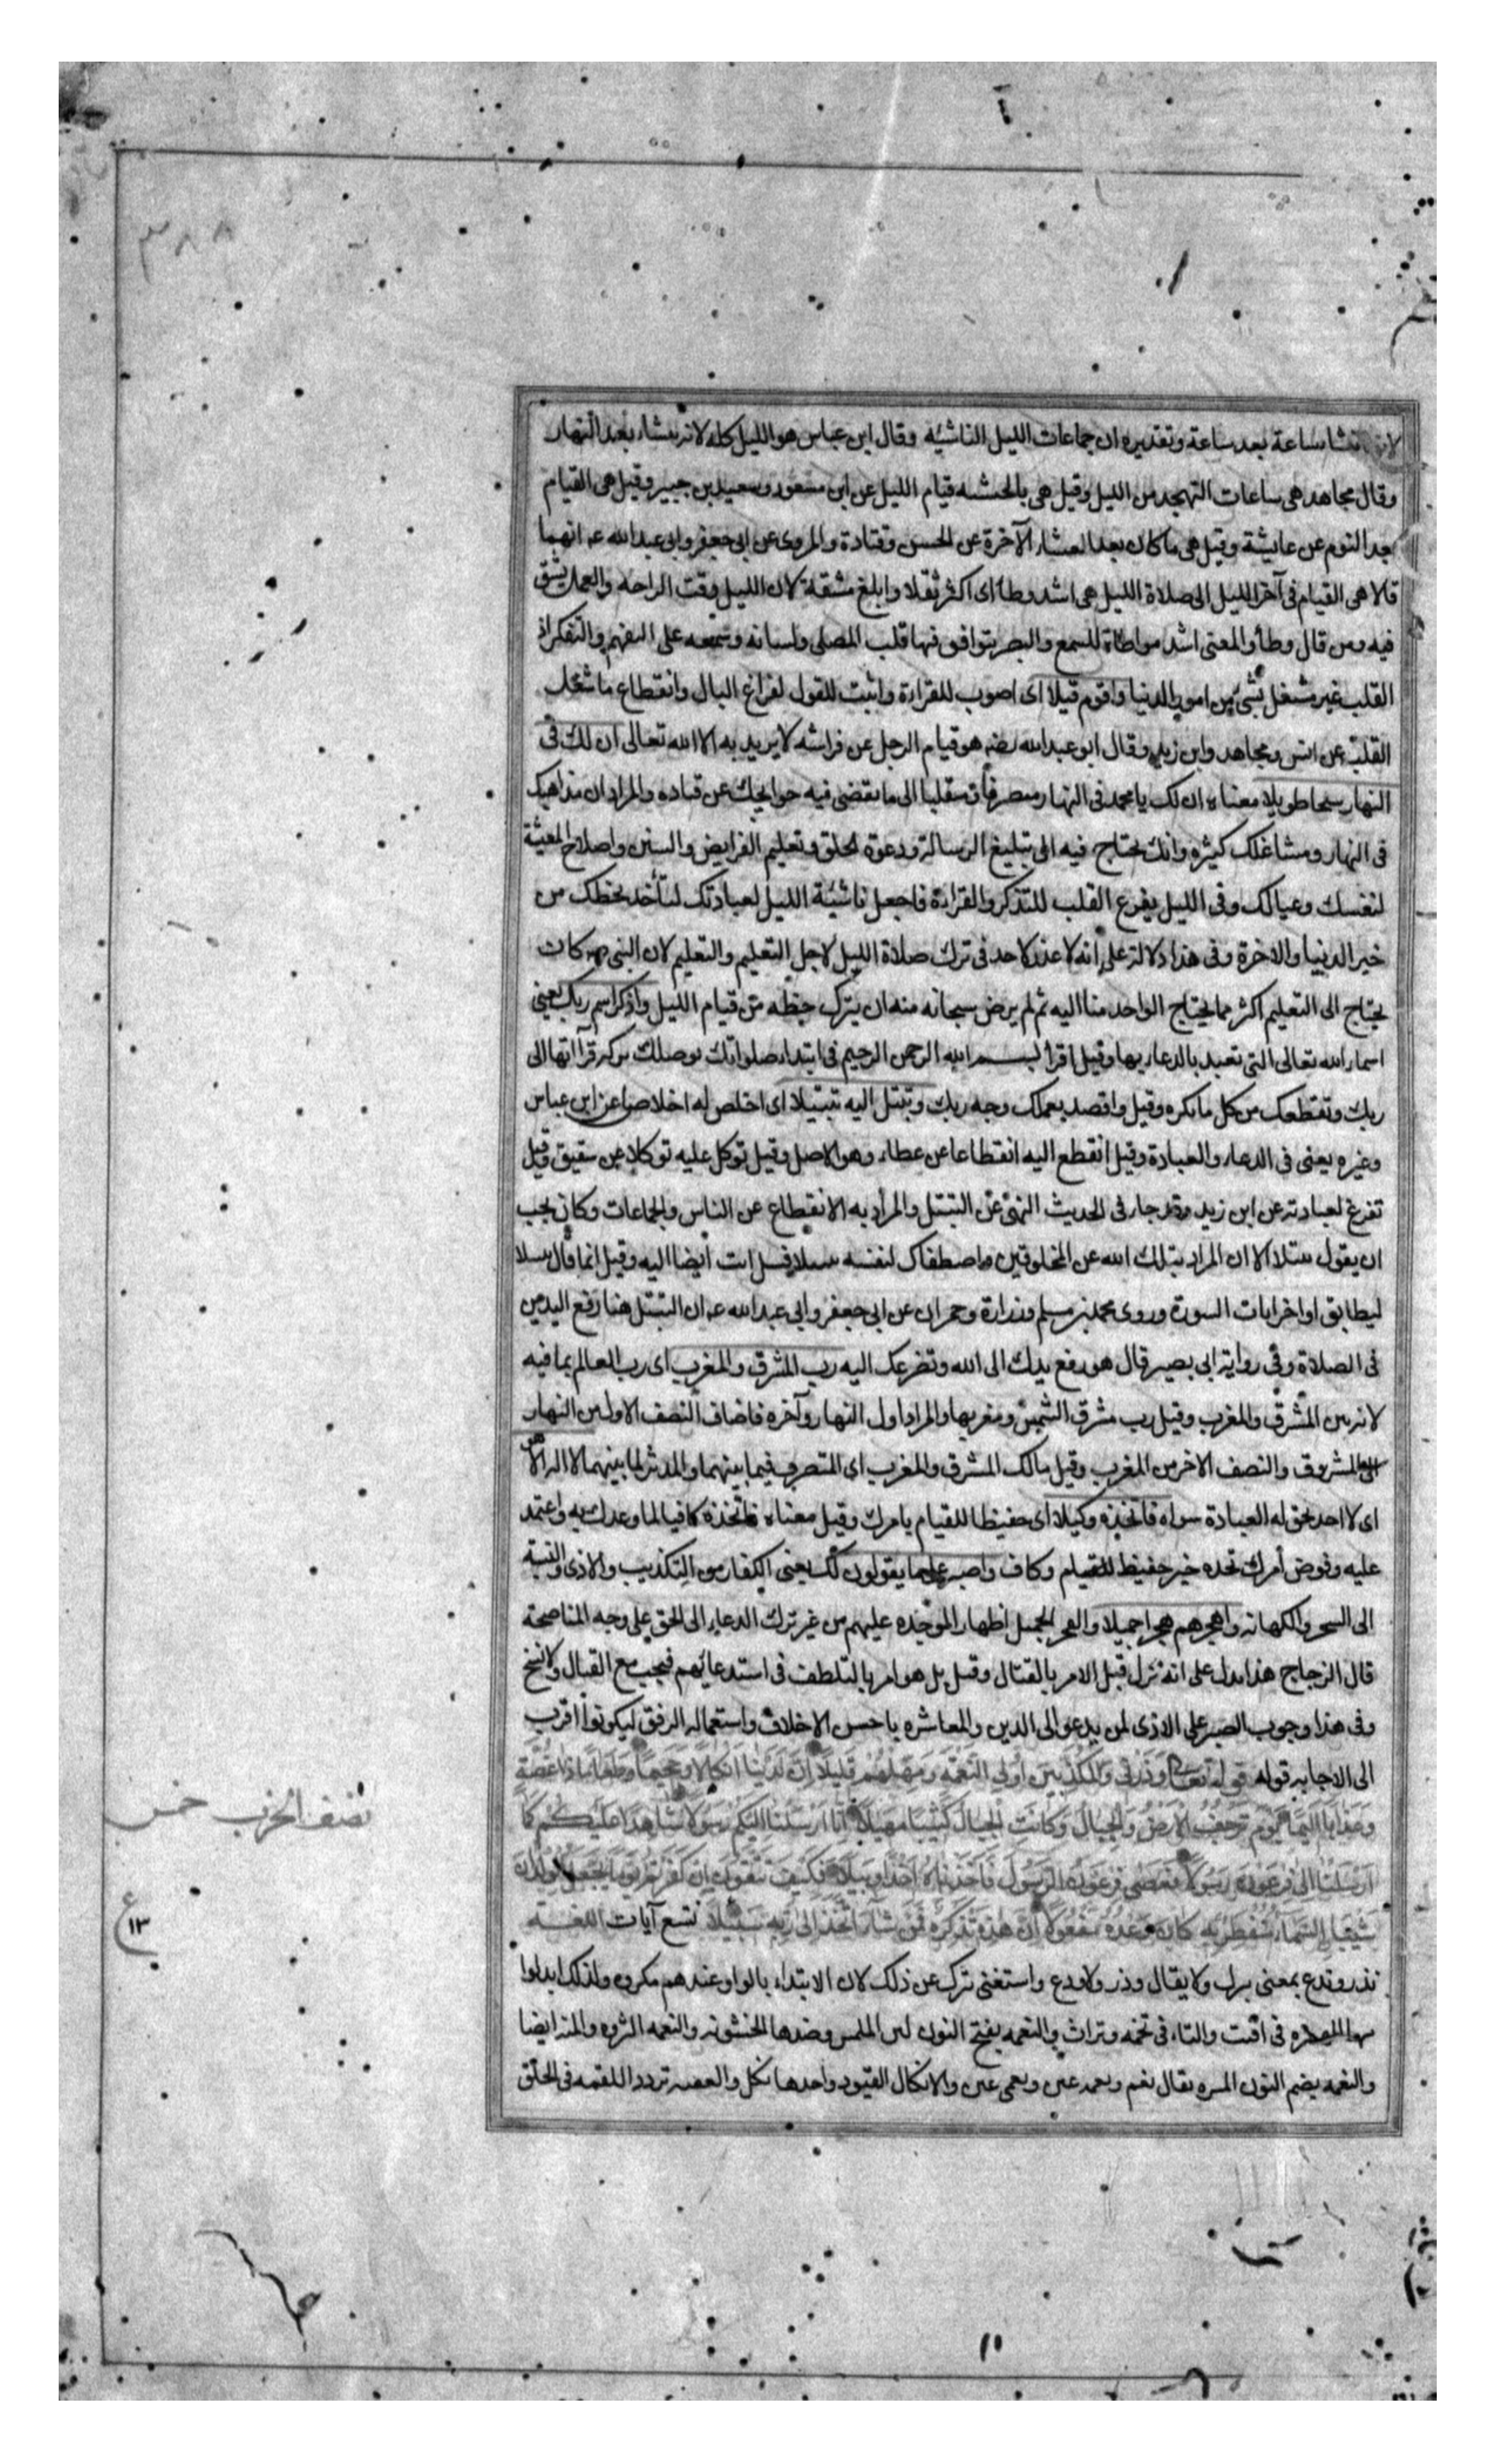 ٣٨٨
لانها تنشا ساعة بعد ساعة وتقديره ان جماعات الليل الناشيئه وقال ابن عباس هو الليل كله لانه ينشاء بعد النهار
وقال مجاهد هى ساعات التهجد من الليل وقيل هى بالحبشه قيام الليل عن ابن مسعود وسعيد بن جبير وقيل هى القيام
بعد النوم عن عايشة وقيل هى ماكان بعد العشاء الآخرة عن الحسن وقتادة والمروى عن ابى جعفر وابى عبدالله عـ انهما
قالا هى القيام فى آخر الليل الى صلاة الليل هى اشد وطأ اى اكثر ثقلا وابلغ مشقة لان الليل وقت الراحه والعمل يشق
فيه ومن قال وطأ والمعنى اشد مواطاة للسمع والبصر يتوافق فيها قلب المصلى ولسانه وسمعه على التفهم والتفكر اذ
القلب غير مشغل بشئ من امور الدنيا واقوم قيلا اى اصوب للقراءة واثبت للقول لفراغ البال وانقطاع ما شغل
القلب عن انس ومجاهد وابن زيد وقال ابو عبدالله هو قيام الرجل عن فراشه لا يريد به الا الله تعالى ان لك فى
النهار سبحا طويلا معناه ان لك يا محمد فى النهار منصرفا ومتقلبا الى ما تقضى فيه حوايجك عن قتاده والمراد ان مذاهبك
فى النهار ومشاغلك كثيره وانك تحتاج فيه الى تبليغ الرسالة ودعوة الخلق وتعليم الفرايض والسنن واصلاح المعيشة
لنفسك وعيالك وفى الليل يفرغ القلب للتذكر والقراءة فاجعل ناشيئة الليل لعبادتك لتأخذ بحظك من
خير الدنيا والاخرة وفى هذا دلالة على انه لا عذر لاحد فى ترك صلاة الليل لاجل التعليم والتعليم لان النبى كان
يحتاج الى التعليم اكثر مما يحتاج الواحد منا اليه ثم لم يرض سبحانه منه ان يترك حظه من قيام الليل واذكر اسم ربك يعنى
اسماء الله تعالى التى تعبد بالدعاء بها وقيل اقرأ بسم الله الرحمن الرحيم فى ابتداء صلواتك توصلك بركة قرآاتها الى
ربك وتقطعك من كل ما يكره وقيل واقصد بعملك وجه ربك وتبتل اليه تبتيلا اى اخلص له اخلاصا عن ابن عباس
وغيره يعنى فى الدعاء والعبادة وقيل انقطع اليه انقطاعا عن عطاء وهو الاصل وقيل توكل عليه توكلا عن شقيق وقيل
تفرغ لعبادته عن ابن زيد وقد جاء فى الحديث النهى عن التبتل والمراد به الانقطاع عن الناس والجماعات وكان يجب
ان يقول تبتلا الا ان المراد بتلك الله عن المخلوقين واصطفاك لنفسه تبتيلا فتبتل انت ايضا اليه وقيل انما قال تبتيلا
ليطابق اواخر ايات السورة وروى محمد بن مسلم وزرارة وحمران عن ابى جعفر وابى عبدالله عـ ان التبتل هنا رفع اليدين
فى الصلاة وفى رواية ابى بصير قال هو رفع يدك الى الله وتضرعك اليه رب المشرق والمغرب اى رب العالم بما فيه
لانه بين المشرق والمغرب وقيل رب مشرق الشمس ومغربها والمراد اول النهار وآخره فاضاف النصف الاول من النهار
الى المشرق والنصف الاخر من المغرب وقيل مالك المشرق والمغرب اى المتصرف فيما بينهما والمدبر لما بينهما لا اله الا هو
اى لا احد تحق له العبادة سواه فاتخذه وكيلا اى حفيظا للقيام بامرك وقيل معناه فاتخذه كافيا لما وعدك به واعتمد
عليه وفوض أمرك تجده خير حفيظ للقيام وكاف واصبر على ما يقولون لك يعنى الكفار من التكذيب والاذى والنسبة
الى السحر والكهانه واهجرهم هجرا جميلا والهجر الجميل اظهار الموجده عليهم من غير ترك الدعاء الى الحق على وجه المناصحة
قال الزجاج هذا يدل على انه نزل قبل الامر بالقتال وقيل بل هو امر بالتلطف فى استدعائهم فيجب مع القتال ولا نسخ
وفى هذا وجوب الصبر على الاذى لمن يدعو الى الدين والمعاشره باحسن الاخلاق واستعمال الرفق ليكونوا اقرب
الى الاجابه قوله قوله تعالى وَذَرْنِى وَالْمُكَذِّبِينَ اُولِى النَّعْمَةِ وَمَهِّلْهُمْ قَلِيلًا اِنَّ لَدَيْنَا اَنْكَالًا وَجَحِيمًا وَطَعَامًا ذَا غُصَّةٍ
وَعَذَابًا اَلِيمًا يَوْمَ تَرْجُفُ الْاَرْضُ وَالْجِبَالُ وَكَانَتِ الْجِبَالُ كَثِيبًا مَهِيلًا اِنَّا اَرْسَلْنَا اِلَيْكُمْ رَسُولًا شَاهِدًا عَلَيْكُمْ كَمَا
اَرْسَلْنَا اِلَى فِرْعَوْنَ رَسُولًا فَعَصَى فِرْعَوْنُ الرَّسُولَ فَاَخَذْنَاهُ اَخْذًا وَبِيلًا فَكَيْفَ تَتَّقُونَ اِنْ كَفَرْتُمْ يَوْمًا يَجْعَلُ الْوِلْدَانَ
شِيْبًا السَّمَاءُ مُنْفَطِرٌ بِهِ كَانَ وَعْدُهُ مَفْعُولًا اِنَّ هَذِهِ تَذْكِرَةٌ فَمَنْ شَآءَ اتَّخَذَ اِلَى رَبِّهِ سَبِيلًا تسع آيات اللغـــة
نذر وندع بمعنى نترك ولا يقال وذر ولا ودع واستغنى ترك عن ذلك لان الابتداء بالواو عندهم مكروه ولذلك ابدلوا
منها الهمزه فى اقتت والتاء فى تخمه وتراث والنعمه بفتح النون لين الملمس وضدها الخشونه والنعمه الثروه والمنه ايضا
والنعمه بضم النون المسره يقال نعم ونعمه عين ونعمى عين والانكال القيود واحدها نكل والغصه تردد اللقمه فى الحلق
نصف الحزب خمس
ع
١٣